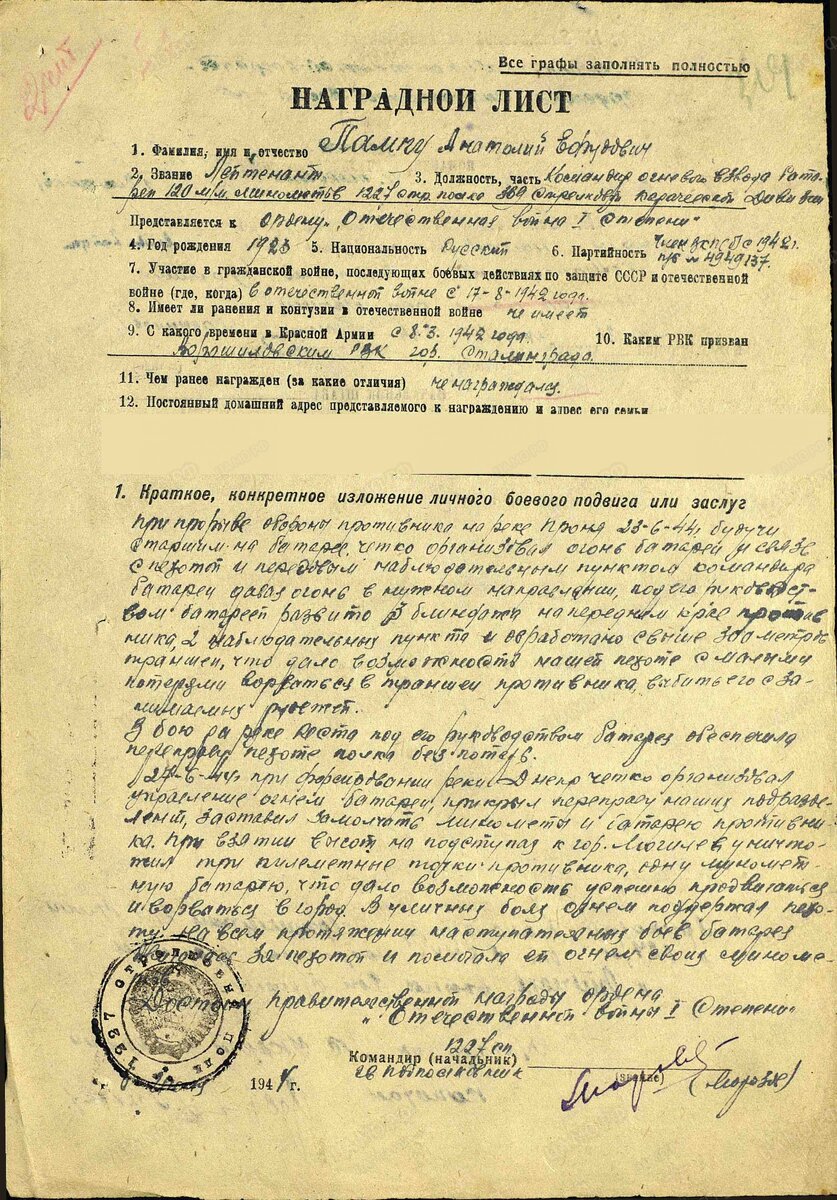 Все графы заполнять полностью
НАГРАДНОЙ ЛИСТ
1. Фамилия, имя и отчество Анатолий
2. Звание Лейтенант 3. Должность, часть Командир огневого взвода бата
реи 120 м/м минометов 1227 стр. полка 369 Стрелковой Карачевской Дивизии
Представляется к Ордену „Отечественная война I Степени"
4. Год рождения 1923 5. Национальность Русский 6. Партийность Член ВКП(б) с 1942 г.
п/б № 4949137.
7. Участие в гражданской войне, последующих боевых действиях по защите СССР и отечественной
войне (где, когда) в отечественной войне с 17-8-1942 года.
8. Имеет ли ранения и контузии в отечественной войне не имеет
9. С какого времени в Красной Армии с 8.3.1942 года. 10. Каким РВК призван
Ворошиловским РВК гор. Сталинграда.
11. Чем ранее награжден (за какие отличия) не награждался.
12. Постоянный домашний адрес представляемого к награждению и адрес его семьи
1. Краткое, конкретное изложение личного боевого подвига или заслуг
При прорыве обороны противника на реке Проня 23-6-44г. будучи
старшим на батарее, четко организовал огонь батареи и связь
с пехотой и передовым наблюдательным пунктом командира
батареи давая огонь в нужном направлении, под его руководст-
вом батареей развито блиндажа на переднем крае против
ника, 2 наблюдательных пункта и обработано свыше 300 метров
траншеи, что дало возможность нашей пехоте с малыми
потерями ворваться в траншеи противника, выбить его с за-
нимаемых рубежей.
В бою за реке Бася под его руководством батарея обеспечила
переправу пехоте полка без потерь.
27-6-44г. при форсировании реки Днепр четко организовал
управление огнем батареи, прикрыл переправу наших подразде-
лений, заставил замолчать минометы и батарею противни-
ка. При взятии высот на подступах к гор. Могилев уничто-
жил три пулеметные точки противника, одну миномет-
ную батарею, что дало возможность успешно продвигаться
и ворваться в город. В уличных боях огнем поддержал пехо-
ту. На всем протяжении наступательных боев батарея
за пехотой и помогала ей огнем своих миноме-
Достоин правительственной награды ордена
„Отечественной войны I Степени"
Командир (начальник) 1227 сп
гв подполковник (звание)
1944 г.
1227 СТРЕЛКОВЫЙ ПОЛК